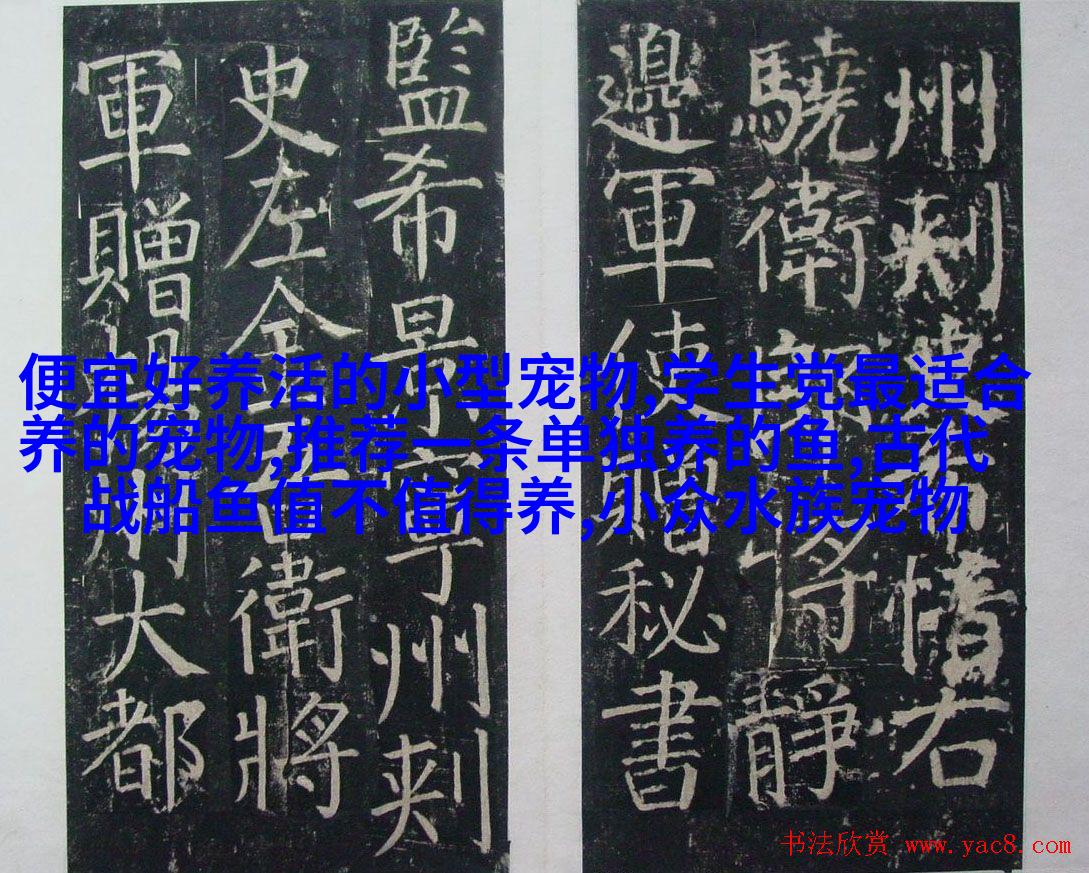 州刾希愔右
驍衛郎將靜
邊軍使贈秘書
監希景寧州刾
史左金吾衛將
軍贈大都
便宜好养活的小型宠物,学生党最适合
养的宠物,推荐一条单独养的鱼,古代
战船鱼值不值得养,小众水族宠物
书法欣赏 www.yac8.com